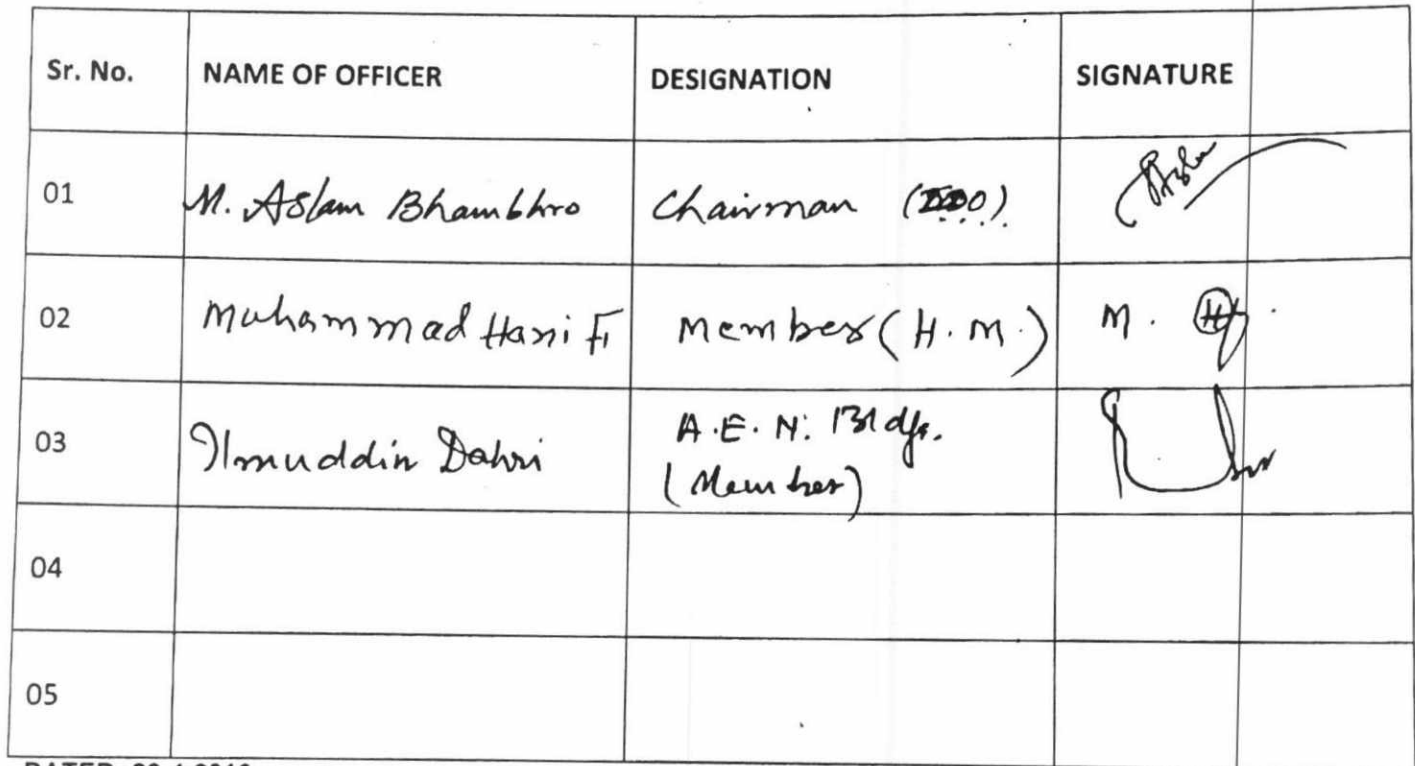 Sr. No. NAME OF OFFICER DESIGNATION SIGNATURE
01 M. Aslam Bhambhro Chairman
02 Muhammad Hanif Member (H.M.) M.
03 Ilmuddin Dahri A.E.N. Bldgs.
(Member)
04
05